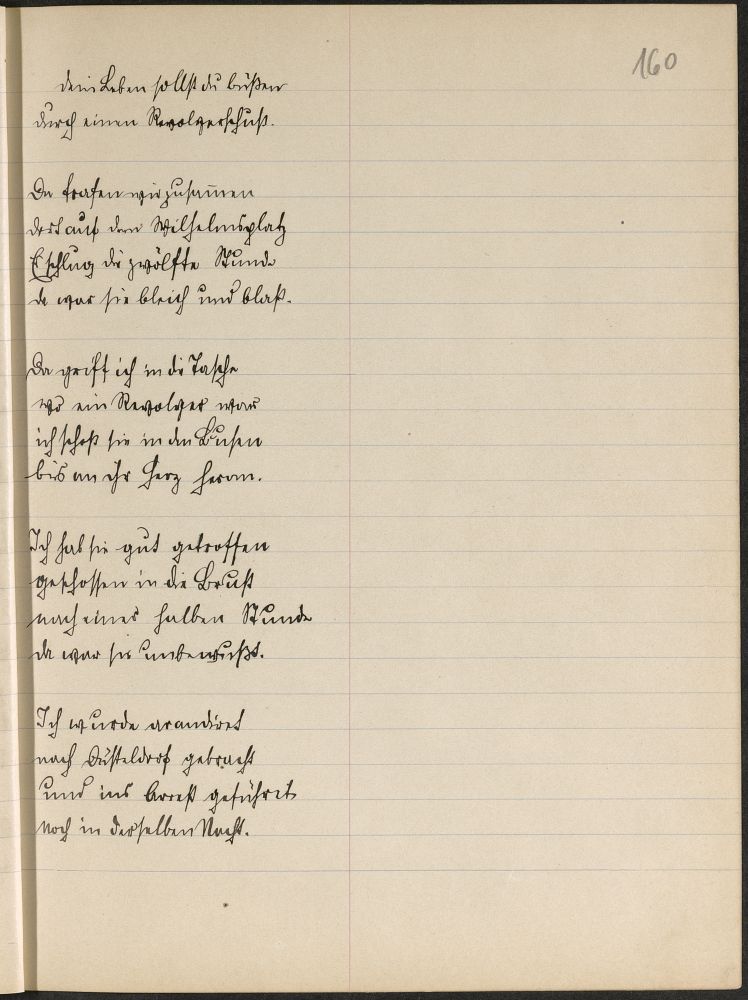 160
dein Leben sollst du büßen
durch einen Revolverschuß.
Da trafen wir zusam̅en
dort auf dem Wilhelmsplatz
Es schlug die zwölfte Stunde
da war sie bleich und blaß.
Da griff ich in die Tasche
wo ein Revolver war
ich schoß sie in den Busen
bis an ihr Herz heran.
Ich hab sie gut getroffen
geschossen in die Brust
nach einer halben Stunde
da war sie unbewußt.
Ich wurde arandiret
nach Düsteldorf gebracht
und ins Arrest geführet
noch in derselben Nacht.